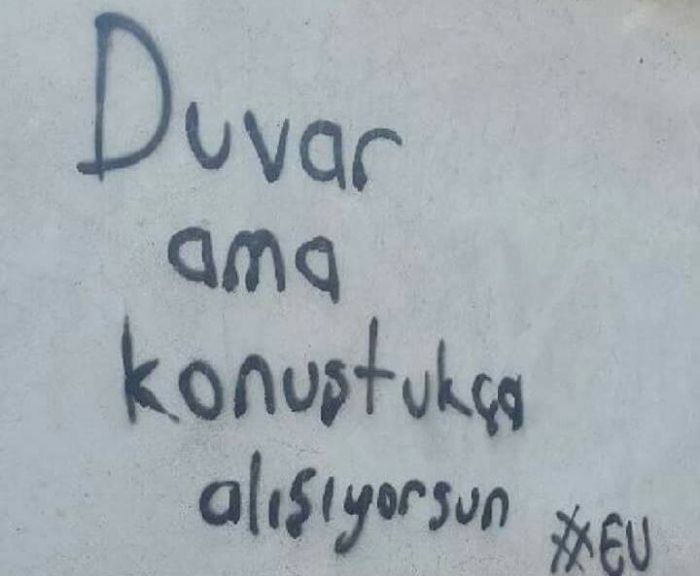 Duvar
ama
konuştukça
alışıyorsun
#EU